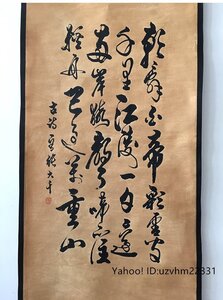 朝辭白帝彩雲間
千里江陵一日還
兩岸猿聲啼不住
輕舟已過萬重山
Yahoo! ID:uzvhm22331